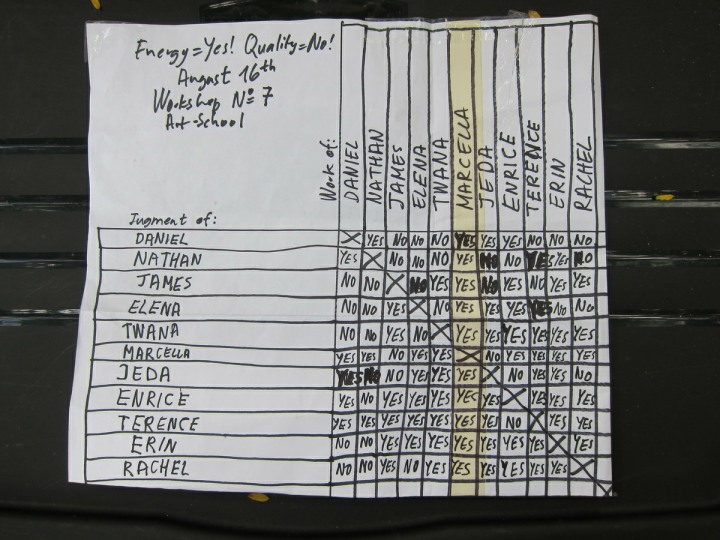 Energy=Yes! Quality=No!
August 16th
Workshop No 7
Art-School
Work of:
DANIEL
NATHAN
JAMES
ELENA
TWANA
MARCELLA
JEDA
ENRICE
TERENCE
ERIN
RACHEL
Jugment of:
DANIEL X YES NO NO NO YES YES YES NO NO NO
NATHAN YES X NO NO NO YES NO NO YES YES NO
JAMES NO NO X NO YES YES NO YES NO YES YES
ELENA NO NO YES X NO YES YES YES YES NO NO
TWANA NO NO YES NO X YES YES YES YES YES YES
MARCELLA YES YES NO YES YES X NO YES YES YES YES
JEDA YES NO NO YES YES YES X NO YES YES NO
ENRICE YES NO YES YES YES YES YES X YES YES YES
TERENCE YES YES YES YES YES YES YES NO X YES YES
ERIN NO NO YES YES YES YES YES YES YES X YES
RACHEL NO NO YES NO YES YES YES YES YES YES X